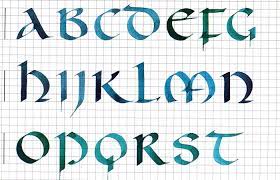 ABCDEFG
hIJKLMN
OPQRST